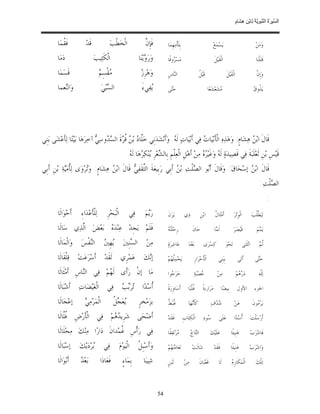 السِّيرَةُ النَّبَوِيَّةُ لِابْنِ هِشَامٍ
وَمَنْ يَسْتَمْتِعْ
فَإِنَّ الْخَطْبَ قَدْ فَقُمَا
وَإِنَّ الْقَيْلَ قَبْلَ النَّاسِ
يَذُوقُ حَتَّى يُفِيءَ السَّبْيَ وَالنَّعما
قَالَ ابْنُ هِشَامٍ: وَهَذِهِ الْأَبْيَاتُ فِي أَبْيَاتٍ لَهُ. وَأَنْشَدَنِي خَلَّادُ بْنُ قُرَّةَ السَّدُوسِيُّ آخِرَهَا بَيْتًا لِأَعْشَى بَنِي
قَيْسِ بْنِ ثَعْلَبَةَ فِي قَصِيدَةٍ لَهُ وَغَيْرُهُ مِنْ أَهْلِ الْعِلْمِ بِالشِّعْرِ يُنْكِرُهَا لَهُ
قَالَ ابْنُ إِسْحَاقَ: وَقَالَ أَبُو الصَّلْتِ بْنُ أَبِي رَبِيعَةَ الثَّقَفِيُّ قَالَ ابْنُ هِشَامٍ: وَتُرْوَى لِأُمَيَّةَ بْنِ أَبِي
الصَّلْتِ
لِيَطْلُبِ الْوِتْرَ أَمْثَالُ ابْنِ ذِي يَزَنَ رَيَّمَ فِي الْبَحْرِ لِلْأَعْدَاءِ أَحْوَالَا
يَمَّمَ قَيْصَرَ لَمَّا حَانَ رِحْلَتُهُ فَلَمْ يَجِدْ عِنْدَهُ بَعْضَ الَّذِي سَالَا
ثُمَّ انْثَنَى نَحْوَ كِسْرَى بَعْدَ عَاشِرَةٍ مِنْ السِّنِينَ يُهِينُ النَّفْسَ وَالْمَالَا
حَتَّى أَتَى بِبَنِي الْأَحْرَارِ يَحْمِلُهُمْ إِنَّكَ عَمْرِي لَقَدْ أَسْرَعْتَ قِلْقَالَا
لِلَّهِ دَرُّهُمْ مِنْ عُصْبَةٍ خَرَجُوا مَا إِنْ رَأَى لَهُمْ فِي النَّاسِ أَمْثَالَا
أُسْدًا تُرَبِّبُ فِي الْغَيْضَاتِ أَشْبَالَا
يَرْمُونَ عَنْ شُدُفٍ كَأَنَّهَا غُبُطٌ بِزَمْخَرٍ يُعَجِّلُ الْمَرْمِيَّ إِعْجَالَا
أَرْسَلْتَ أُسْدًا عَلَى سُودِ الْكِلَابِ فَقَدْ أَضْحَى شَرِيدُهُمْ فِي الْأَرْضِ فُلَّالَا
فَاشْرَبْ هَنِيئًا عَلَيْكَ التَّاجُ مُرْتَفِقًا فِي رَأْسِ غُمْدَانَ دَارًا مِنْكَ مِحْلَالَا
وَاشْرَبْ هَنِيئًا فَقَدْ شَالَتْ نَعَامَتُهُمْ وَأَسْبِلْ الْيَوْمَ فِي بُرْدَيْكَ إِسْبَالَا
تِلْكَ الْمَكَارِمُ لَا قَعْبَانِ مِنْ لَبَنٍ شِيبَا بِمَاءٍ فَعَادَا بَعْدُ أَبْوَالَا
54